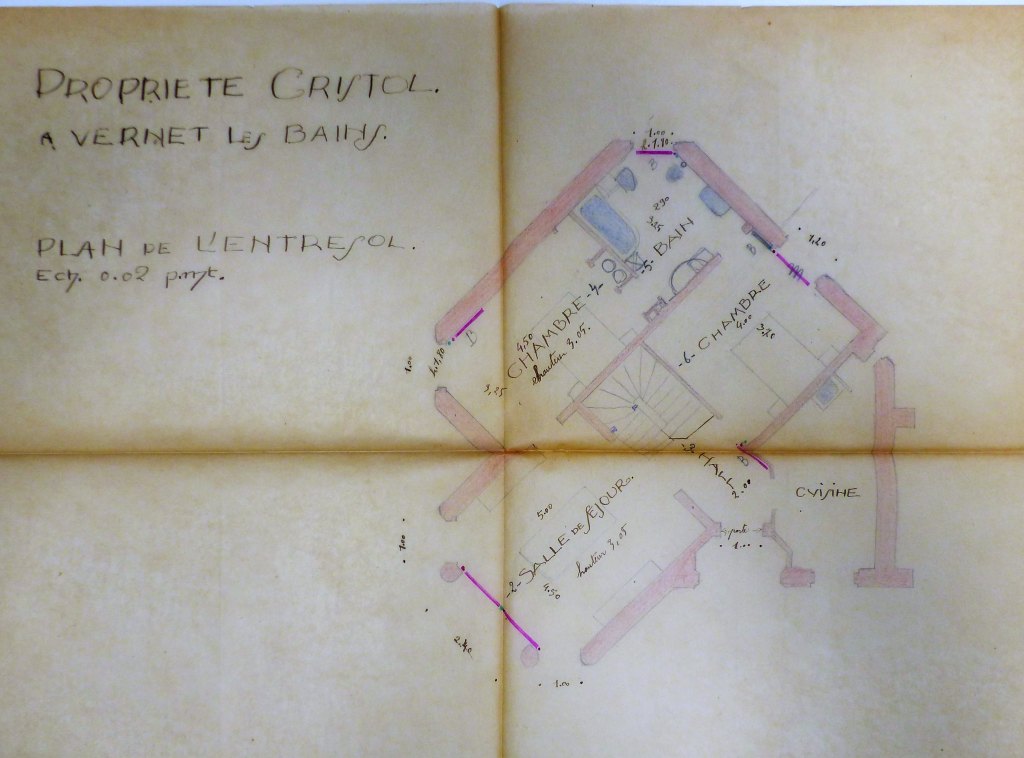 PROPRIETE CRISTOL.
A VERNET LES BAINS.
PLAN DE L'ENTRESOL.
Ech. 0.02 p.mt.
1.00
h.1.80
B
290
3.25
-5- BAIN
B
1.20
-4- CHAMBRE
4.50
hauteur 3.05.
3,25
1.00
h.1,80
-6- CHAMBRE
4.00
3,70
-3- HALL
2.00
CUISINE
porte
1.00
-2- SALLE DE SÉJOUR.
5.00
hauteur 3,05
4.50
1.00
2,40
1.00